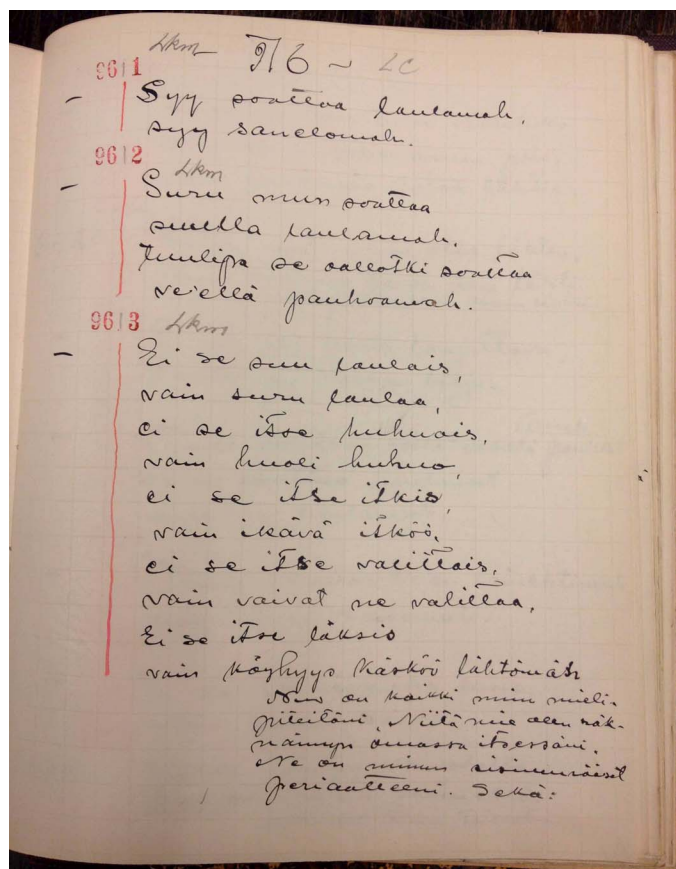 Lkm 76 ~ LC
9611
– Syy soattaa laulamah,
syy sanelomah.
9612
Lkm
– Suru mun soattaa
suulla laulamah,
tuulipa se oallotki soattaa
veiellä pauhoamah.
9613 Lkm
– Ei se suu laulais,
vain suru laulaa,
ei se itse huhuais,
vain huoli huhuo,
ei se itse itkis,
vain ikävä itköö,
ei se itse valittais,
vain vaivat ne valittaa,
Ei se itse läksis
vain köyhyys käsköö lähtömäh
Now on kaikki miun mieli-
piteitäni, Niitä mie olen näk-
nännyn omassa itsessäni,
Ne on minun sisimmäiset
periaatteeni. Sekä: